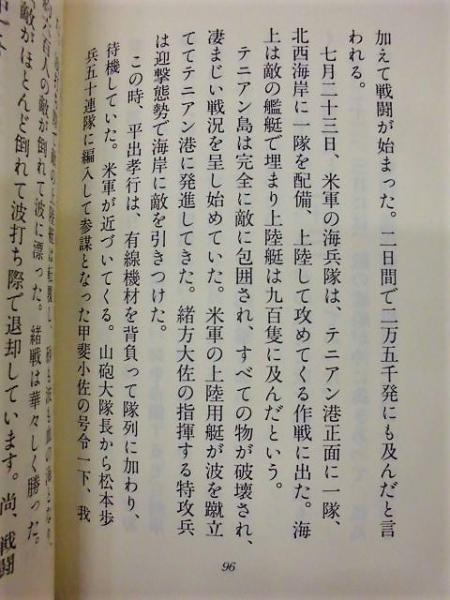 加えて戦闘が始まった。二日間で二万五千発にも及んだと言
われる。
七月二十三日、米軍の海兵隊は、テニアン港正面に一隊、
北西海岸に一隊を配備、上陸して攻めてくる作戦に出た。海
上は敵の艦艇で埋まり上陸艇は九百隻に及んだという。
テニアン島は完全に敵に包囲され、すべての物が破壊され、
凄まじい戦況を呈し始めていた。米軍の上陸用艇が波を蹴立
ててテニアン港に発進してきた。緒方大佐の指揮する特攻兵
は迎撃態勢で海岸に敵を引きつけた。
この時、平出孝行は、有線機材を背負って隊列に加わり、
待機していた。米軍が近づいてくる。山砲大隊長から松本歩
兵五十連隊に編入して参謀となった甲斐小佐の号令一下、我
96
百人の敵が倒れて波に漂った。緒戦は華々しく勝った。
敵がほとんど倒れて波打ち際で退却しています。尚、戦闘